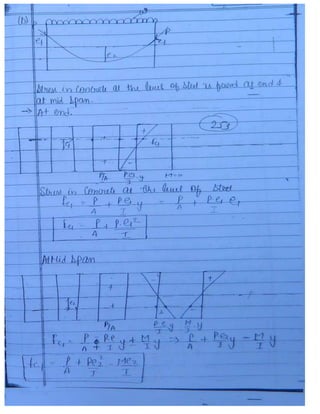 (b)
P
P
e1
e1
e2
Stress in Concrete at the level of Steel is found at end &
at mid span.
→ At end.
253
fc1
+
+
fc1
P/A
P.e1/I y
M=0
Stress in Concrete at the level of Steel
fc1 = P/A + P.e1/I y = P/A + P.e1/I e1
fc1 = P/A + P.e1²/I
At Mid Span
fc2
+
+
P/A
P.e/I y
M/I y
P/A + P.e/I y + M/I y ⇒ P/A + Pe2/I y - M/I y
P/A + Pe2²/I - Me2/I